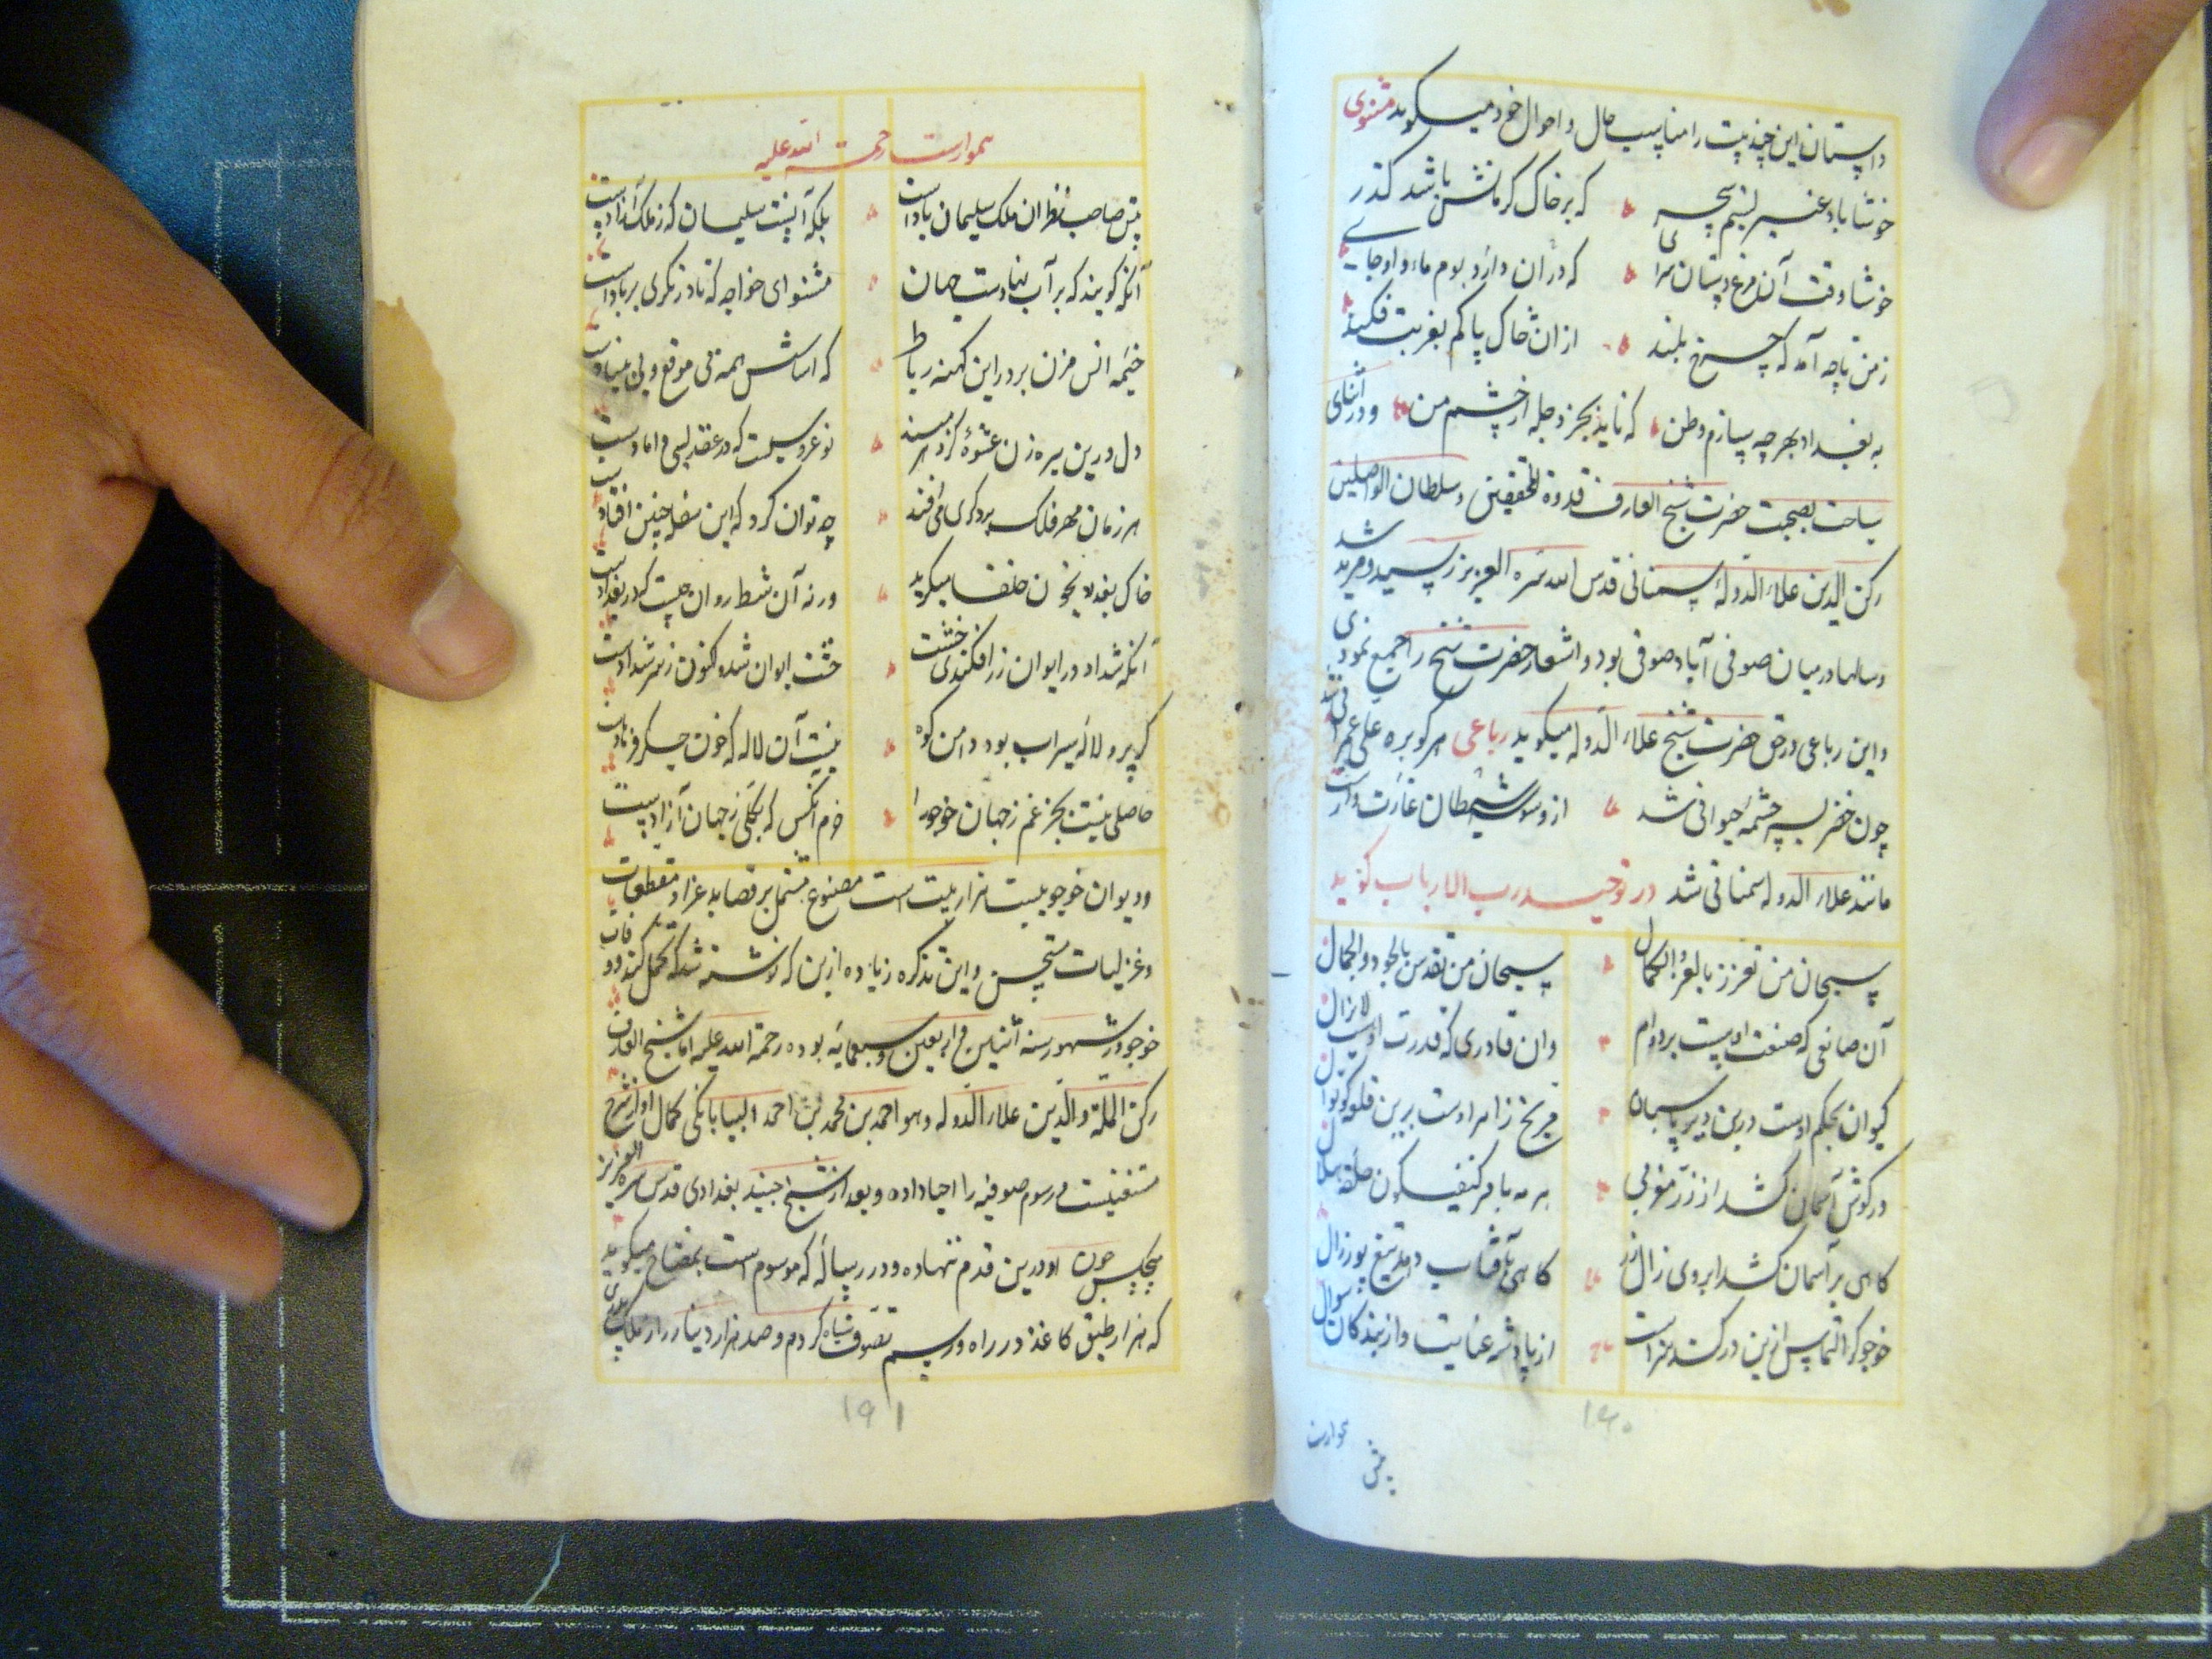 داستان این چند بیت را مناسب حال و احوال خود میگوید مثنوی
خوشا باد عنبر نسیم سحر که بر خاک کرمانش باشد گذر
خوشا وقت آن مرغ دستان سرای که دران دارد بوم ماء وا و جای
ز من تا چه آمد که چرخ بلند از ان خاک پاکم بغربت فکند
به بغداد بهر چه سازم وطن که ناید بجز دجله از چشم من و در اثنای
سیاحت بصحبت حضرت شیخ العارف قدوة المحققین و سلطان الواصلین
رکن الدین علاء الدوله سمنانی قدس الله سره العزیز رسید و مرید شد
و سالها در میان صوفی آباد صوفی بود و اشعار حضرت شیخ را جمع نمودی
و این رباعی در حق حضرت شیخ علاء الدوله میگوید رباعی هر کو بره علی عمرانی شد
چون خضر بسر چشمه حیوانی شد از وسوسه شیطان غارت وارست
مانند علاء الدوله سمنانی شد در توحید رب الارباب گوید
سبحان من تعزز بالعز و الکمال سبحان من تقدس بالجود و الجمال
آن صانعی که صنعت اوست بر دوام وان قادری که قدرت اوست لا یزال
کیوان بحکم اوست درین دیر پاسبان مریخ ز امر اوست برین قلعه کوتوال
در گوش آسمان کشد از زر مغربی هر مه بامر کن فیکون حلقه هلال
گاهی بر آسمان کشد ابروی زال زر گاهی بآفتاب دهد تیغ پور زال
خواجو که التماس ازین در کند سزاست از پادشه عنایت و از بندگان سوال
۱۹۰
هموراست رحمة الله علیه
پیش صاحب نظران ملک سلیمان بادست بلکه آنست سلیمان که ز ملک آزادست
آنکه گویند که بر آب نهادست جهان مشنو ای خواجه که تا در نگری بر بادست
خیمه انس مزن بر در این کهنه رباط که اساسش همه بی موقع و بی بنیادست
دل درین پیره زن عشوه گر دهر مبند نو عروسیست که در عقد بسی دامادست
هر زمان مهر فلک بر دگری می افتد چه توان کرد که این سفله چنین افتادست
خاک بغداد بخون خلفا میگرید ورنه آن شط روان چیست که در بغدادست
آنکه شداد در ایوان ز زر افکندی خشت خشت ایوان شه کنون ز سر شدادست
گر پر از لاله سیراب بود دامن کوه نیست آن لاله که خون جگر فرهادست
حاصلی نیست بجز غم ز جهان خواجو را خرم آنکس که بکلی ز جهان آزادست
و دیوان خواجو بیست هزار بیت است مصنوع مشتمل بر قصاید غرا و مقطعات
و غزلیات مستحسن و این تذکره زیاده ازین که نوشته شد تحمل نکند و وفات
خواجو در شهور سنه اثنین و اربعین و سبعمایه بوده رحمة الله علیه اما شیخ العارف
رکن الملة و الدین علاء الدوله و هو احمد بن محمد بن احمد البیابانکی کمال او از شرح
مستغنیست و رسوم صوفیه را احیا داده و بعد از شیخ جنید بغدادی قدس سره العزیز
هیچکس چون او درین قدم ننهاده و در رساله که موسوم است بمفتاح میگوید
که هزار طبق کاغذ در راه و رسم تصوف سیاه کردم و صد هزار دینار از ملک
۱۹۱